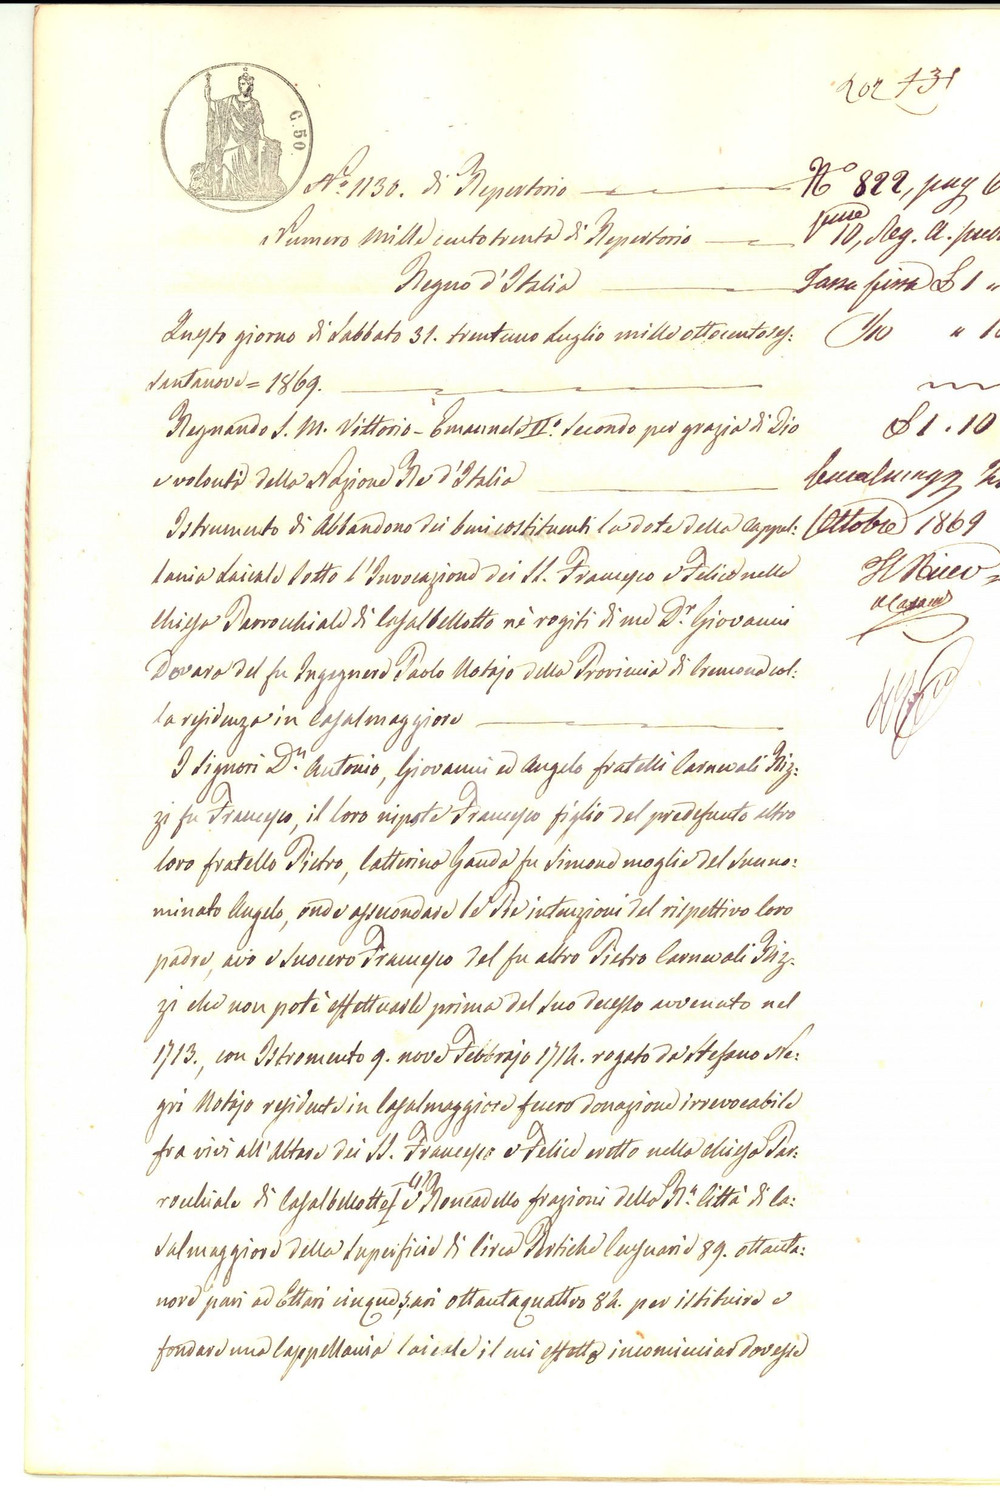 C. 50.
N.° 1130. di Repertorio
Numero mille cento trenta di Repertorio
Regno d'Italia
Questo giorno di Sabbato 31. trentuno Luglio mille ottocentoses:
santanove = 1869.
Regnando S. M. Vittorio - Emanuele II.° Secondo per grazia di Dio
e volontà della Nazione Re d'Italia
Istrumento di Abbandono dei beni costituenti la dote della Cappel:
lania Laicale sotto l'Invocazione dei SS. Francesco e Felice nella
Chiesa Parrocchiale di Casalbellotto nè rogiti di me D.r Giovanni
Dovara del fu Ingegnere Paolo Notajo della Provincia di Cremona col:
la residenza in Casalmaggiore
I Signori D.n Antonio, Giovanni ed Angelo fratelli Carnevali Riz:
zi fu Francesco, il loro nipote Francesco figlio del predefunto altro
loro fratello Pietro, Catterina Ganda fu Simone moglie del sunno:
minato Angelo, onde assecondare le Pie intenzioni del rispettivo loro
padre, avo e suocero Francesco del fu altro Pietro Carnevali Riz:
zi che non potè effettuarle prima del suo decesso avvenuto nel
1713., con Istromento 9. nove Febbrajo 1714. rogato da Stefano Ne:
gri Notajo residente in Casalmaggiore fecero donazione irrevocabile
fra vivi all'Altare dei SS. Francesco e Felice eretto nella chiesa Par:
rochiale di Casalbellotto e Roncadello frazioni della R.a Città di Ca:
salmaggiore della superficie di Circa Pertiche Censuarie 89. ottanta:
nove pari ad Ettari cinque 5. ari ottantaquattro 84. per istituire e
fondare una Cappellania laicale il cui effetto incominciar dovesse
N° 822, pag
10, Reg. A. pub
Tassa fissa £ 1 "
1/10 " 10
£ 1 . 10
Ottobre 1869
Il Ricev